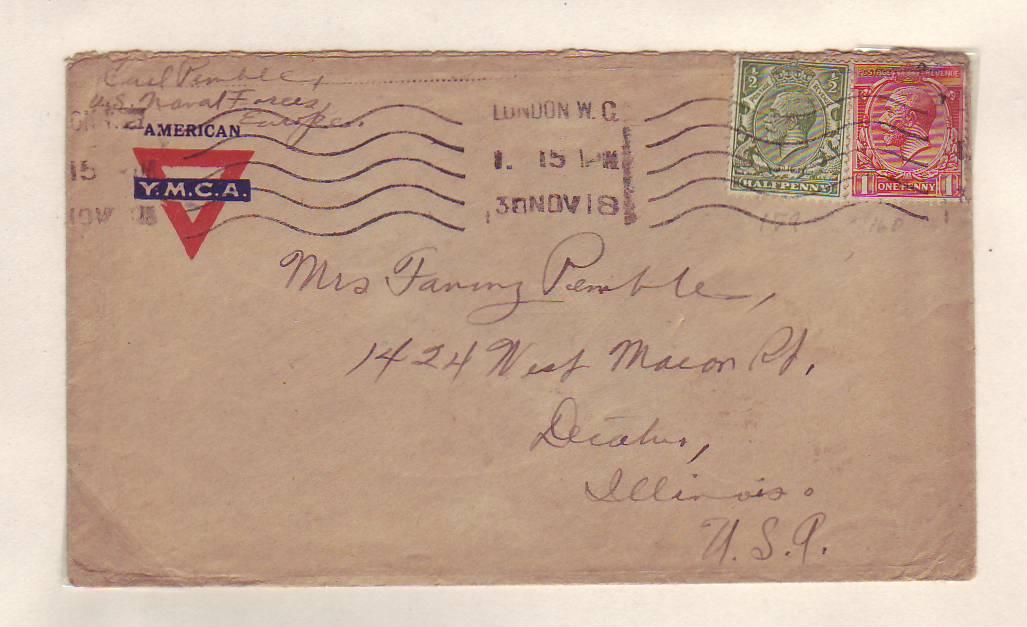 Carl Pemble,
U.S. Naval Forces
Europe.
AMERICAN
Y.M.C.A.
LONDON W.C.
1. 15 PM
30 NOV 18
15
½ ½
HALFPENNY
POSTAGE REVENUE
1 ONE PENNY 1
159 160
Mrs Fanny Pemble,
1424 West Macon St,
Decatur,
Illinois.
U.S.A.